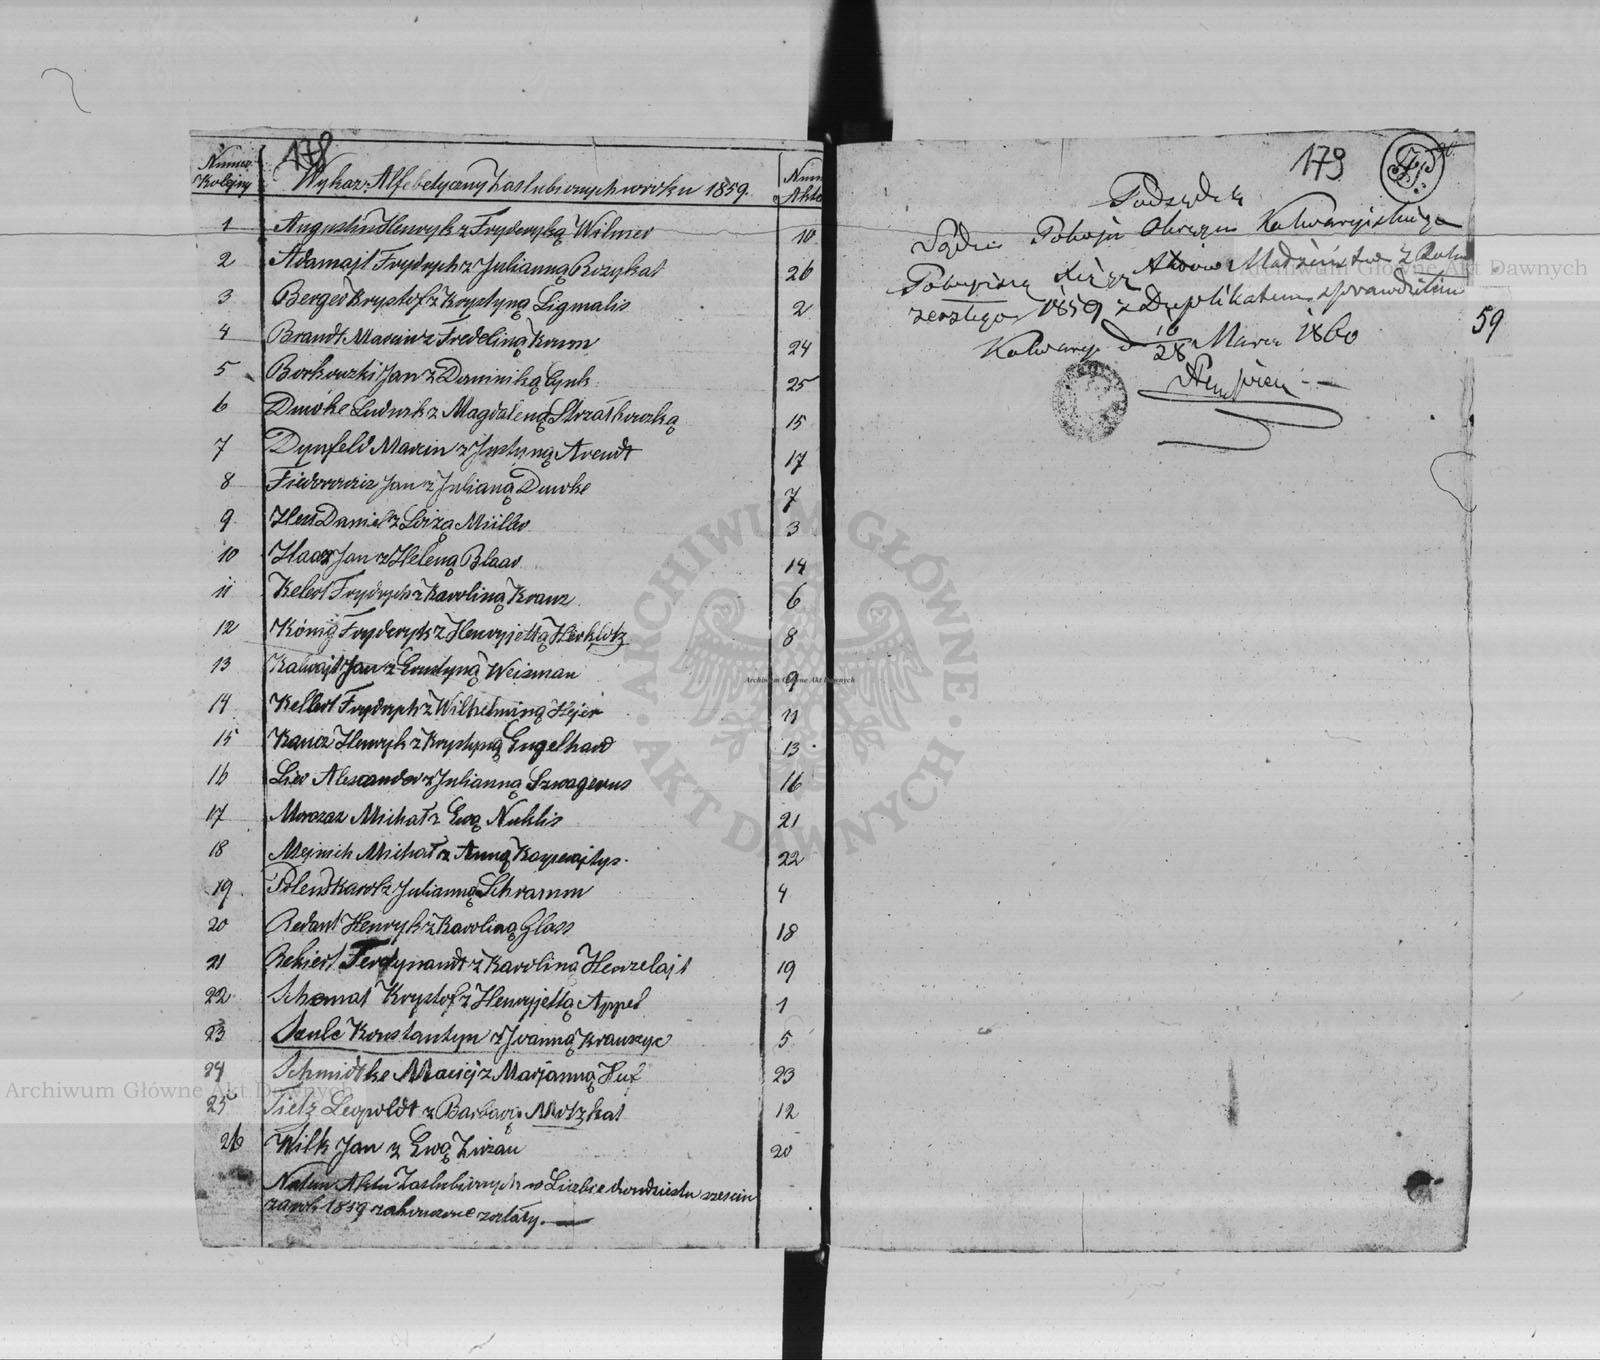 178
Numer Kolejny
Wykaz Alfabetyczny Zaslubionych w roku 1859.
Num Aktu
1 Augustin Henryk z Fryderyką Wilmer 10
2 Adamajt Frydrych z Julianną Rozykat 26
3 Berger Krystof z Krystyną Ligmalis 2
4 Brandt Marcin z Fredeliną Kron 24
5 Borkowski Jan z Dominiką Cynk 25
6 Dmoke Ludwik z Magdaleną Strzałkowską 15
7 Dynfeld Marcin z Justyną Arendt 17
8 Fiedorowicz Jan z Julianą Dmoke 7
9 Hess Daniel z Loizą Müller 3
10 Haaz Jan z Heleną Blaar 14
11 Kelert Frydrych z Karoliną Kranz 6
12 König Fryderyk z Henryjettą Herklotz 8
13 Kalwajt Jan z Ernstyną Weisman 9
14 Kellert Frydrych z Wilhelminą Hejer 11
15 Kancz Henryk z Krystyną Engelhard 13
16 Lier Alexander z Julianną Szwagerus 16
17 Mroczaz Michał z Ewą Nuklis 21
18 Mejnich Michał z Anną Kasperajtys 22
19 Polent Karol z Julianną Schramm 4
20 Redant Henryk z Karoliną Glass 18
21 Rekiert Ferdynandt z Karoliną Henzelajt 19
22 Schemat Krystof z Henryjettą Appel 1
23 Szulc Konstantyn z Joanną Krawzyc 5
24 Schmidtke Maciej z Marjanną Huf 23
25 Tietz Leopoldt z Barbarą Motzkat 12
26 Wilk Jan z Ewą Lużau 20
Zaslubionych w Liczbie dwudziestu szesciu
za rok 1859 zakonczone zostały.
179
Podsędek
Sądu Pokoju Okręgu Kalwaryiskiego
Akt Małżeństw z Roku
1859 z Duplikatem sprawdziłem
Kalwarya d 16/28 Marca 1860
59
ARCHIWUM GŁÓWNE AKT DAWNYCH
Archiwum Główne Akt Dawnych
Archiwum Główne Akt Dawnych
Archiwum Główne Akt Dawnych